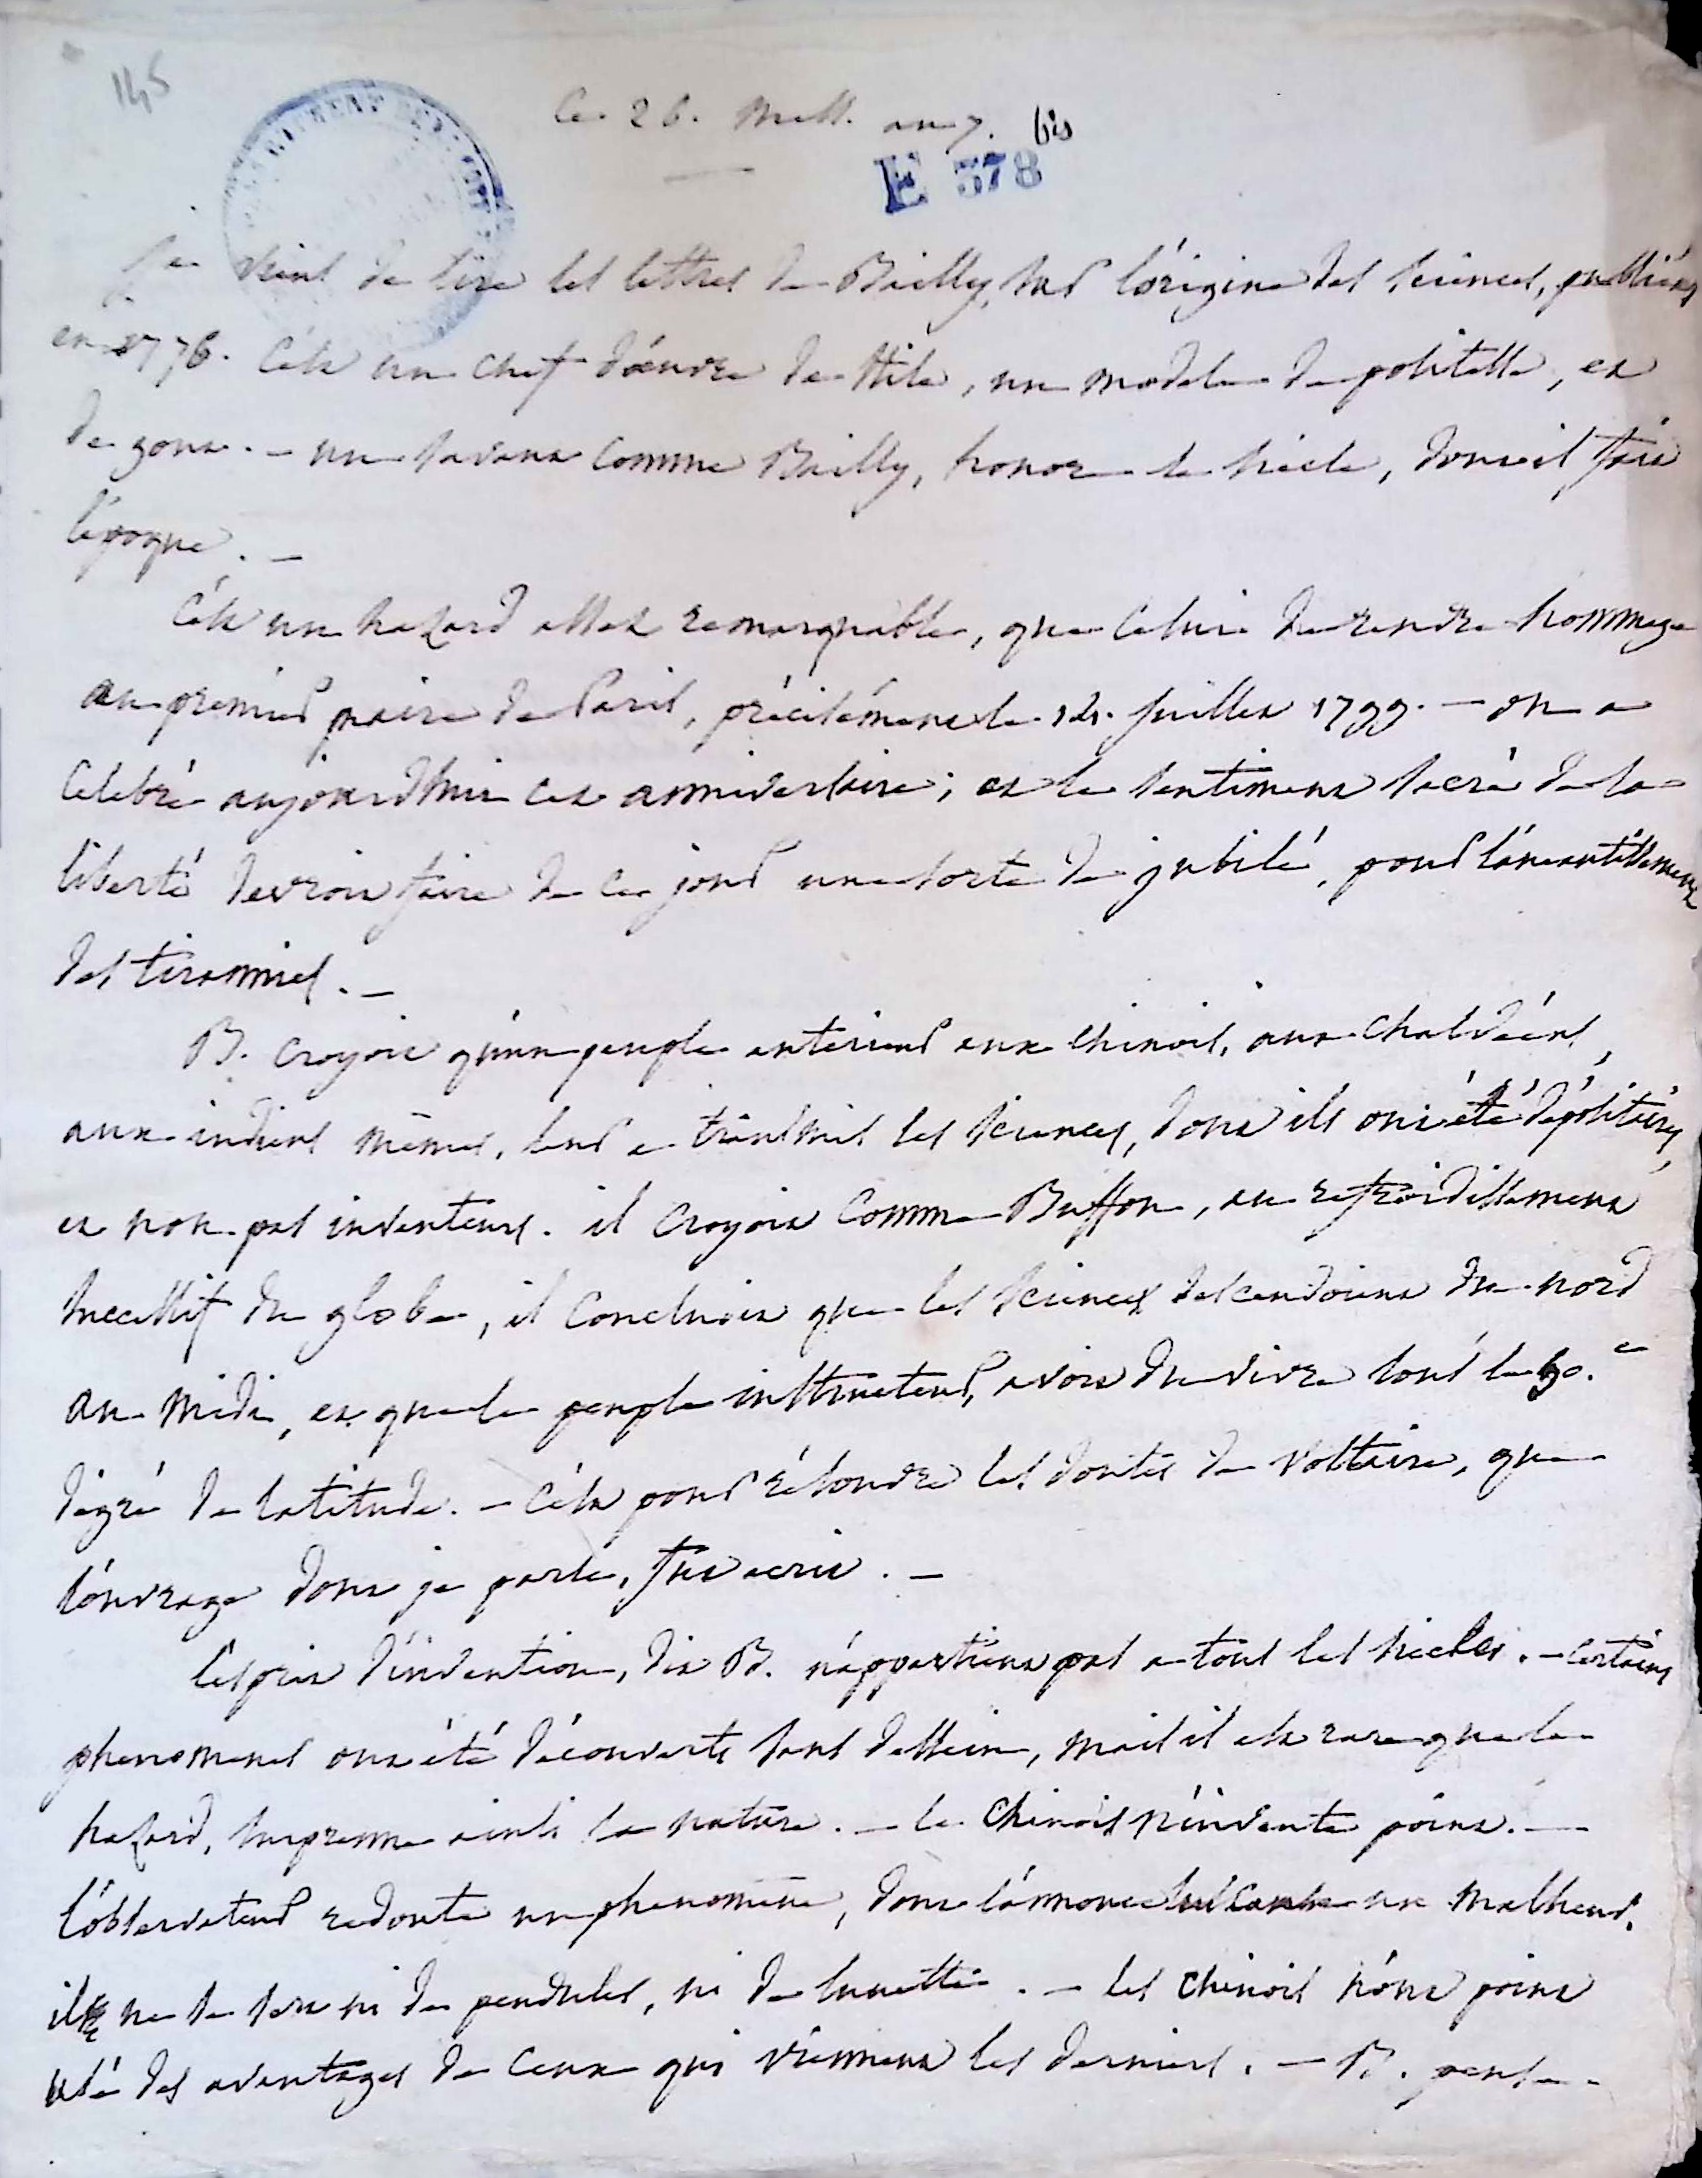 145
Ce 26. Mess. an 7. bis
E 578
Je viens de lire les lettres de Bailly, sur l'origine des sciences, publiées
en 1776. C'est un chef d'œuvre de stile, un modele de politesse, et
de gout. - un savant comme Bailly, honore le siècle, dont il fait
l'époque. -
C'est un hazard assez remarquable, que celui de rendre hommage
au premier maire de Paris, précisément le 14. juillet 1799. - on a
celebré aujourd'hui cet anniversaire; et le sentiment sacré de la
liberté devroit faire de ce jour une sorte de jubilé, pour l'anéantissement
des tirannies. -
B. croyoit qu'un peuple anterieur aux chinois, aux chaldéens,
aux indiens mêmes, leur a transmis les sciences, dont ils ont été dépositaires,
et non pas inventeurs. il croyoit comme Buffon, au refroidissement
successif du globe, il concluoit que les sciences descendoient du nord
au midi, et que le peuple instructeur, avoit du vivre sous le 50.e
dégré de latitude. - C'est pour résoudre les doutes de Voltaire, que
l'ouvrage dont je parle, fut ecrit. -
L'esprit d'invention, dit B. n'appartient pas a tous les siecles. - Certains
phenomenes ont été découverts sans dessein, mais il est rare que le
hazard, surprenne ainsi la nature. - le Chinois n'invente point. -
L'observateur redoute un phenomène, dont l'annonce un malheur.
il ne se sert ni de pendules, ni de lunettes. - les chinois n'ont point
usé des avantages de ceux qui viennent les derniers. - B. pense